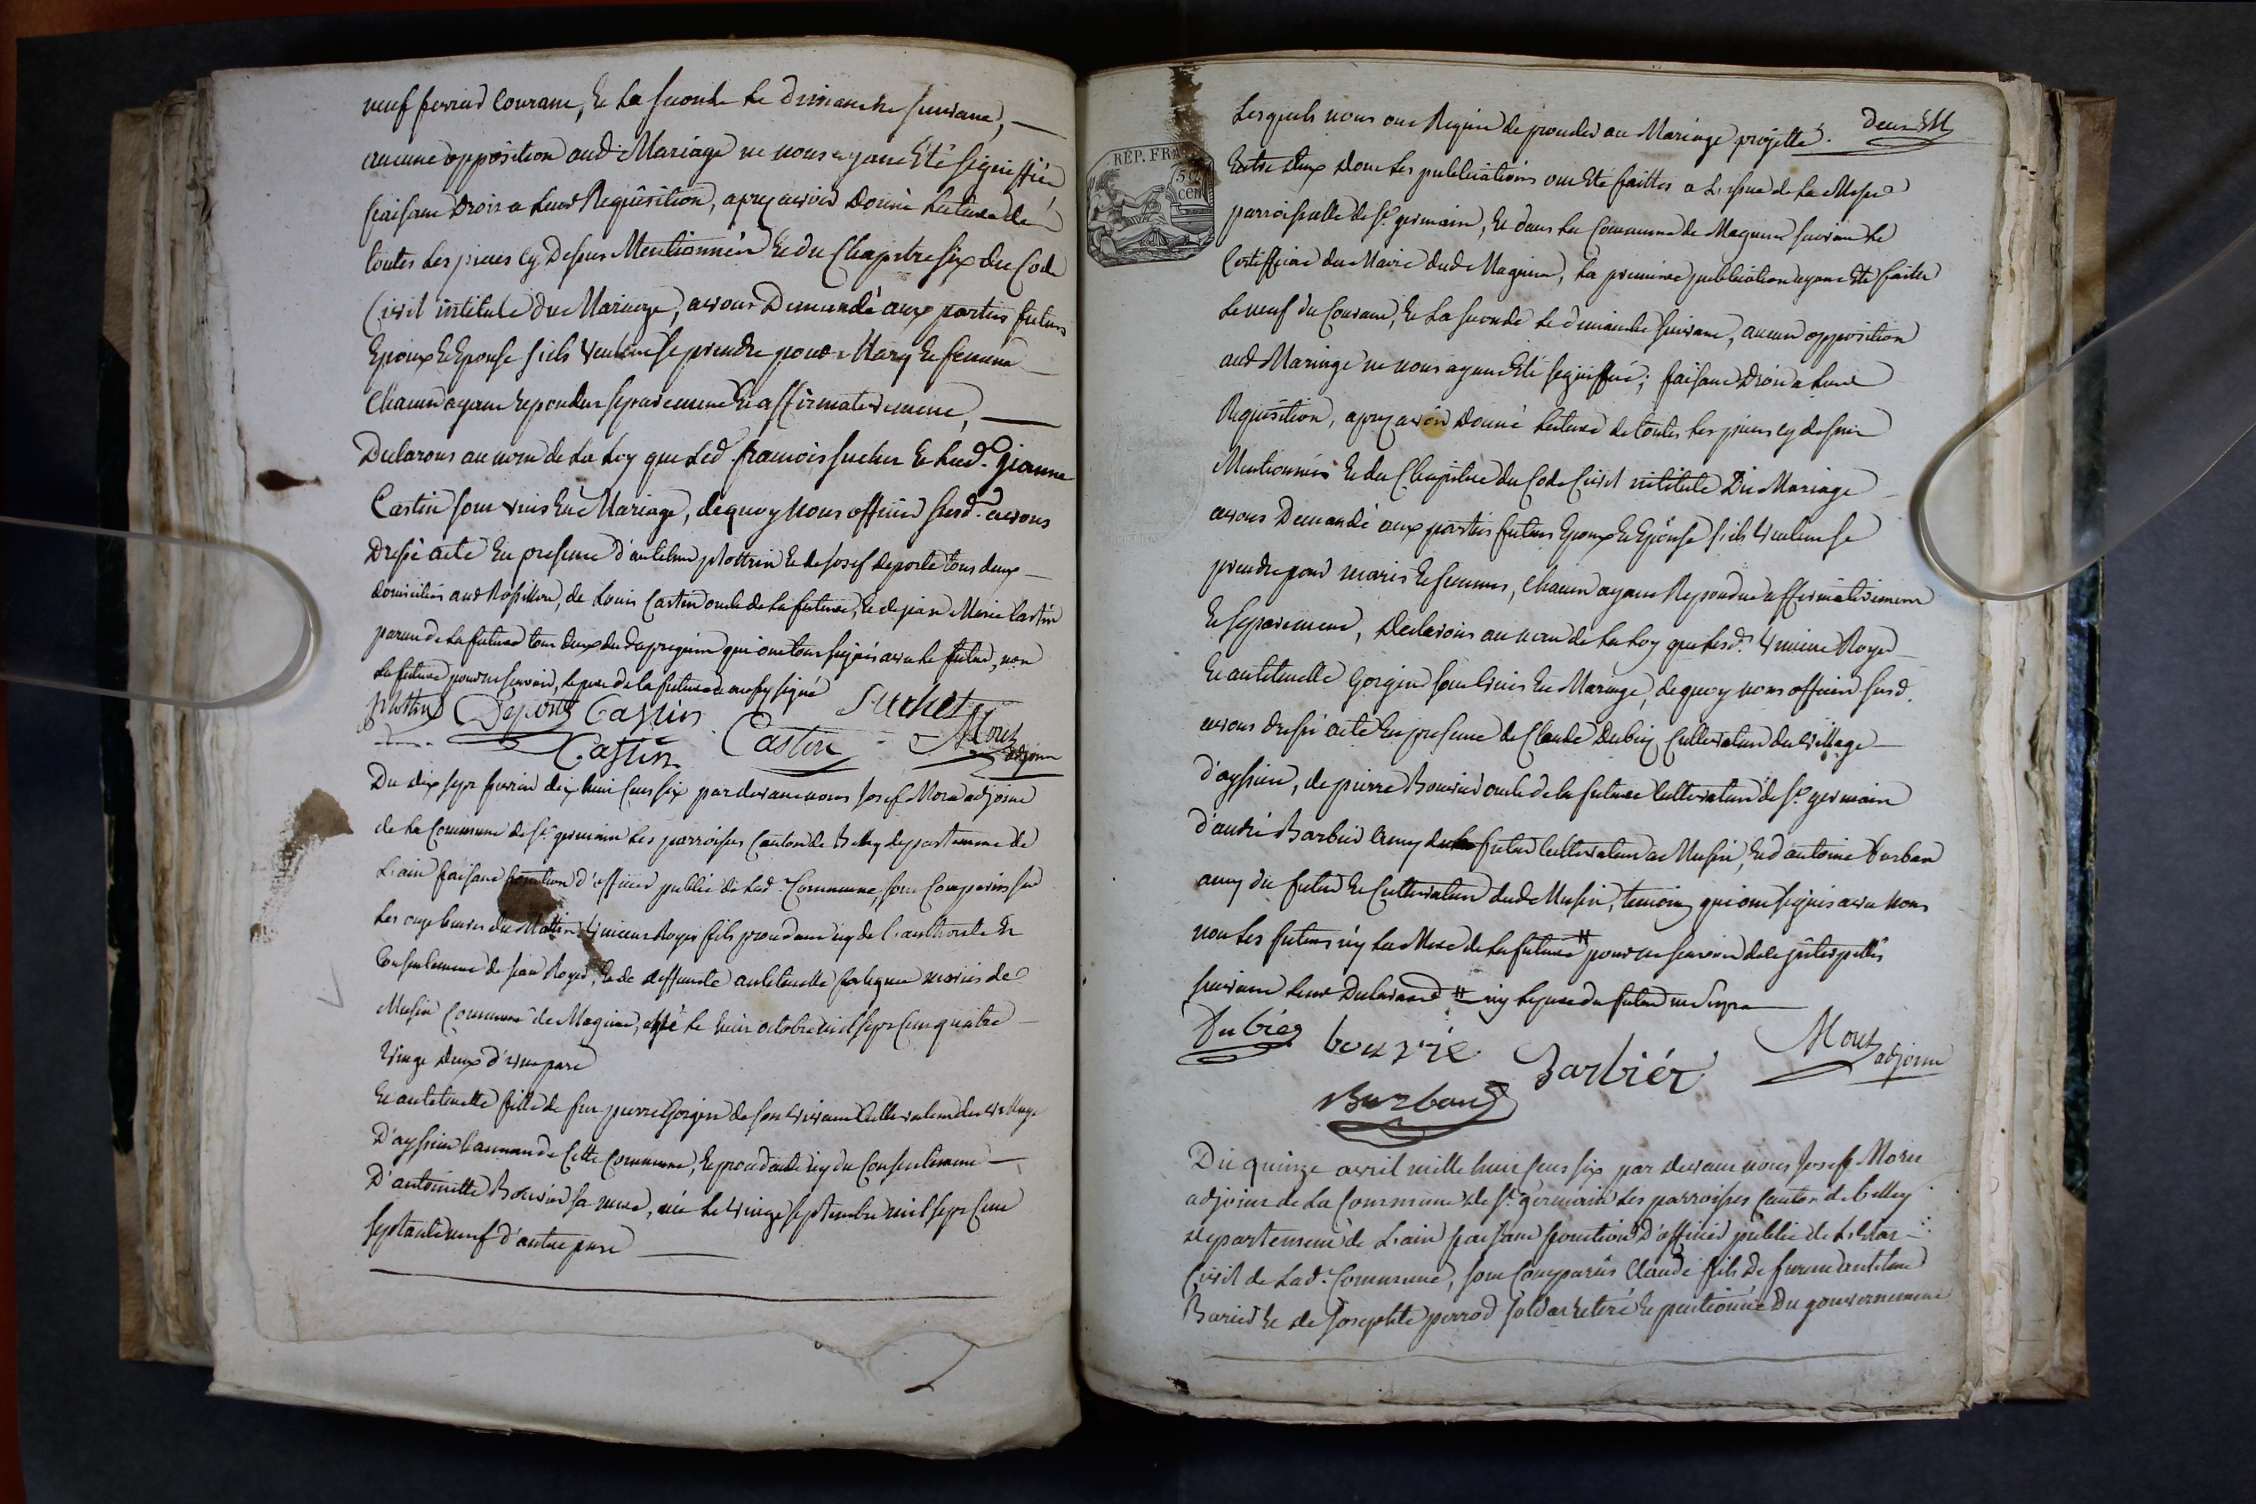 neuf fevrier Courant, Et La seconde Le dimanche suivant,
aucune opposition aud. Mariage ne nous ayant Été signiffiée
faisant Droit a Leur Requisition, apres avoir Donné Lecture de
toutes Les pieces Cy Dessus Mentionnées Et du Chapitre six du Code
Civil intitulé du Mariage, avons Demandé aux parties futurs
Epoux Et Epouse s'ils veulent se prendre pour Mary Et femme
Chacun ayant Repondu separement Et affirmativement,
Declarons au nom de La Loy que Led. francois suchet Et Lad. Jeanne
Castin sont unis En Mariage, de quoy Nous officier susd. avons
Dressé acte En presence d'antelme plottin Et de Josef deporte tous deux
domiciliés aud Rossillon, de Louis Castin oncle de La future, Et de jean Marie Castin
parent de La future tous deux dud. qui ont tous signés avec le futur, non
La future pour ne savoir, Le pere de la future a aussy signé
plottin Deporte Castin Suchet
Castin Castin Moret adjoint
Du dix sept fevrier dix huit cens six par devant nous Josef Moret adjoint
de La Commune de St. germain Les parroisses Canton de Belley departement de
L'ain faisant fonction d'officier public de Lad. Commune, sont Comparus sur
Les onze heures du Matin Vincent Royer fils procedant icy de L'authorité Et
Consentement de jean Royer, Et de deffunte antelmette mariés de
Musin Commune de Magnieu, né Le huit octobre mil sept cent quatre
vingt deux d'une part
Et antelmette fille de feu pierre Gorgin de son vivant Cultivateur du village
D'ayssieu hameau de Cette Commune, Et procedante icy du Consentement
D'antoinette Bouvier sa mere, née Le vingt septembre mil sept cent
septante neuf d'autre part
Lesquels nous ont Requis de proceder au Mariage projetté.
Entre Eux Dont Les publications ont Eté faittes a L'issue de La Messe
parroissialle de St. germain, Et dans La Commune de Magnieu suivant Le
Certifficat du Maire dud. Magnieu, La premiere publication ayant Eté faitte
Le neuf du Courant, Et La seconde Le dimanche suivant, aucun opposition
aud Mariage ne nous ayant Eté signiffié; faisant Droit a Leur
Requisition, apres avoir Donné Lecture de toutes Les pieces cy dessus
Mentionnées Et du Chapitre du Code Civil intitulé Du Mariage
avons Demandé aux parties futurs Epoux Et Epouse s'ils veulent se
prendre pour maris Et femmes, Chacun ayant Repondu affirmativement
Et separement, Declarons au nom de La Loy que Lesd. Vincent Royer
Et antelmette Gorgin sont unis En Mariage, de quoy nous officier susd.
avons dressé acte En presence de Claude Dubiez Cultivateur du village
d'ayssieu, de pierre Bouvier oncle de la future Cultivateur de St. germain
d'andré Barbier amy du futur Cultivateur a Musin, Et d'antoine Burban
amy du futur Et Cultivateur dud Musin, temoins qui ont signés avec Nous
non Les futurs n'y La Mere de La future # pour ne scavoir de ce interpellés
suivant Leur Declaration # ny Le pere du futur
Dubiez bouvié Barbiér Moret adjoint
Burband
Du quinze avril mille huit cens six par devant nous Joseph Moret
adjoint de La Commune de St. germain Les parroisses Canton de belley
departement de L'ain faisant fonction D'officier public de L'Etat
Civil de Lad. Commune, sont Comparus Claude fils De furent antelme
Barier Et de Josephte perrod soldat Retiré Et pentionné Du gouvernement
REP. FRA
50
CEN